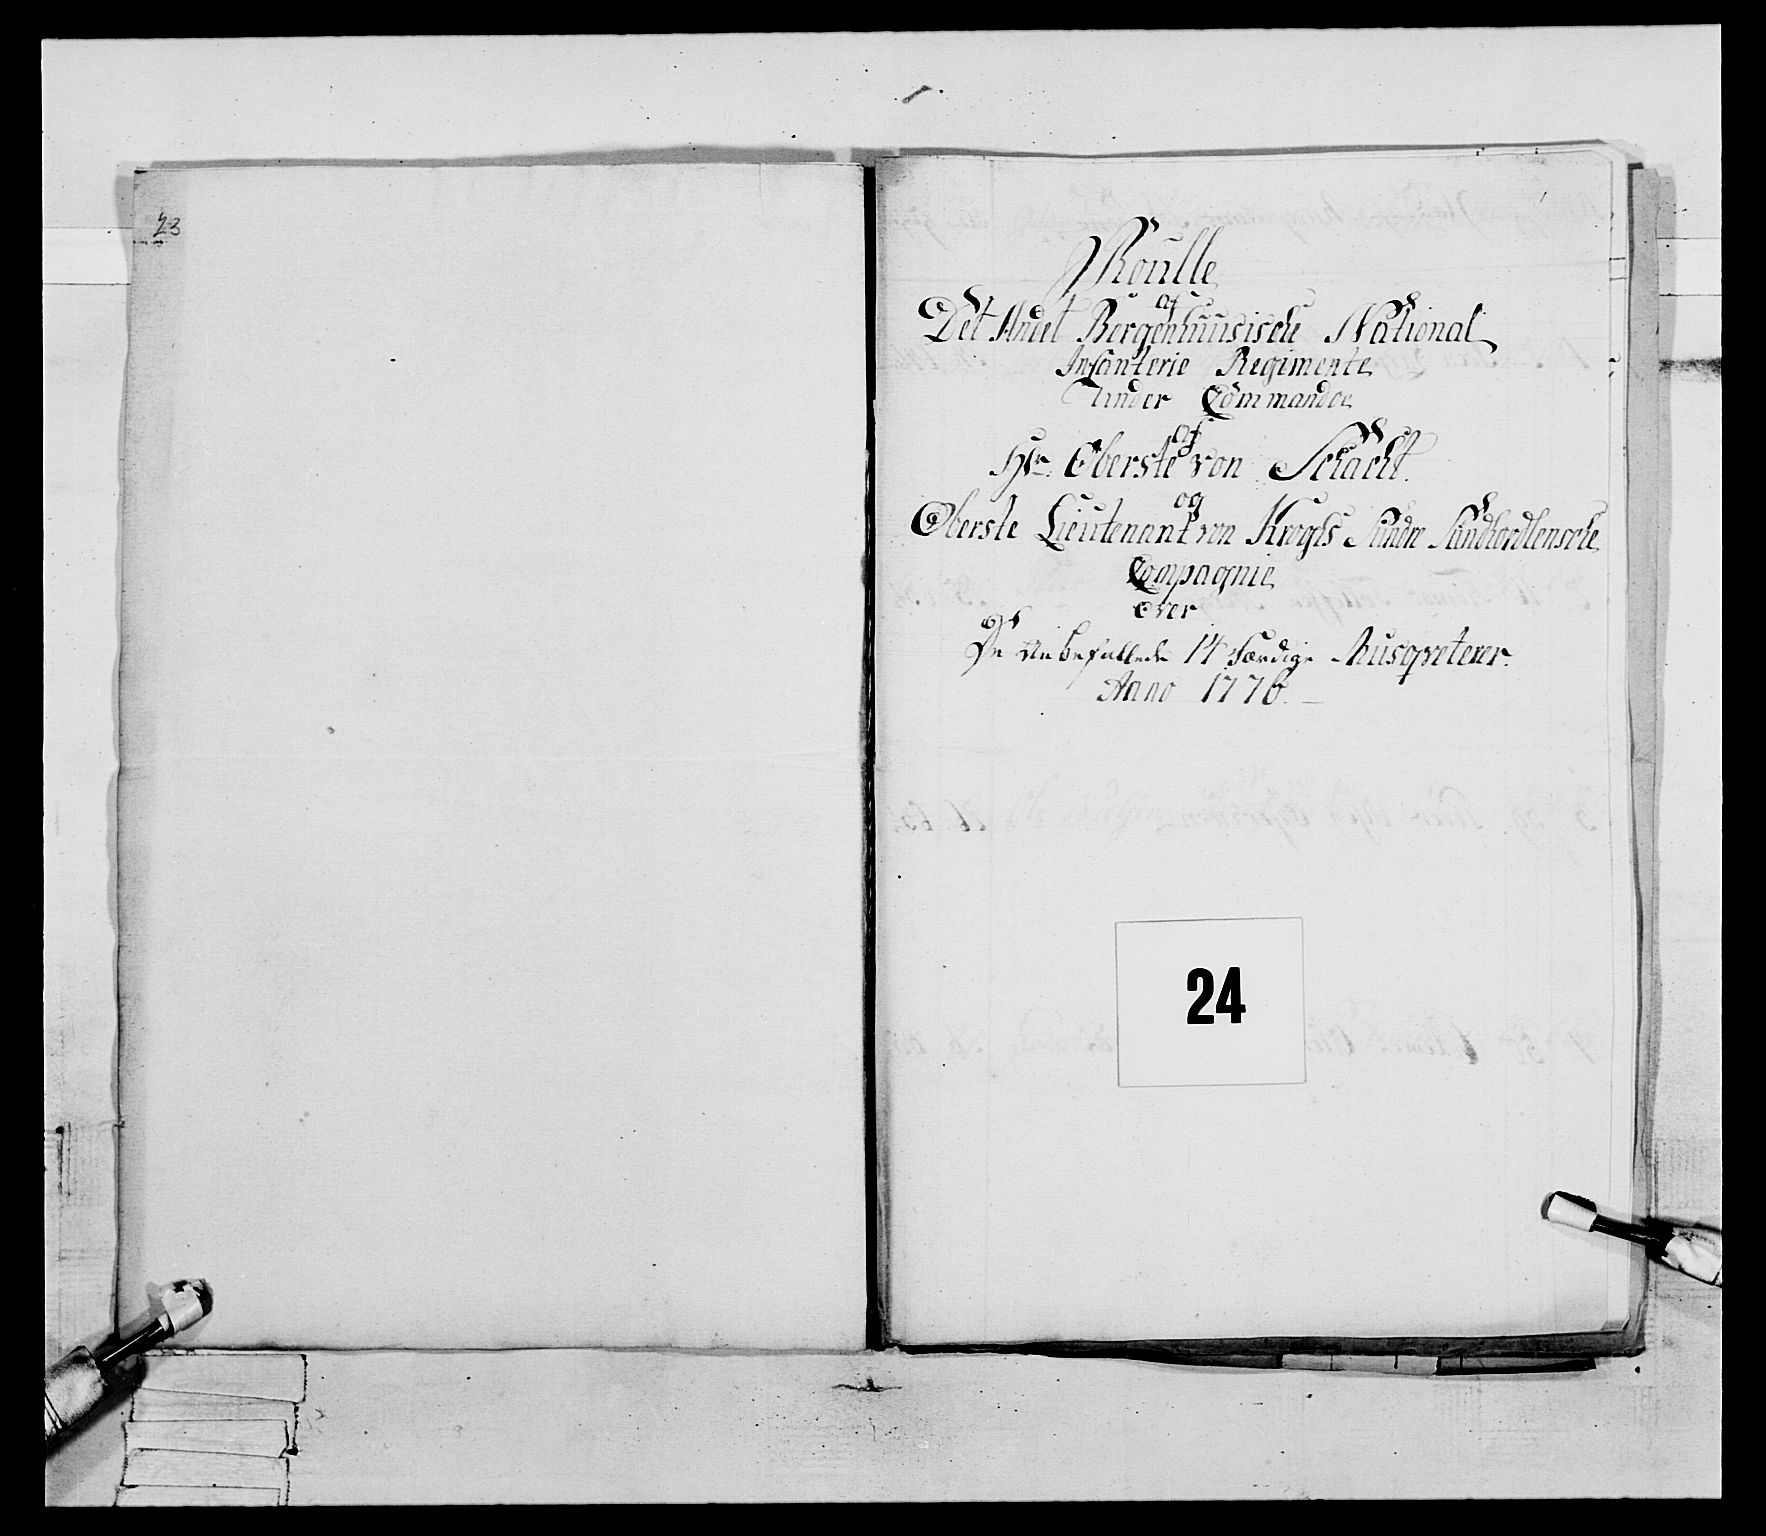 23
Roulle
af
Det Andet Bergenhuusische National
Infanterie Regimente
Under Commando
af
Hr. Oberste von Schacht.
og
Oberste Lieutenant von Kroghs Søndre Sundhordlensche
Compagnie
Over
De Anbefallede 14 Færdige Musqveterer.
Anno 1776.
24